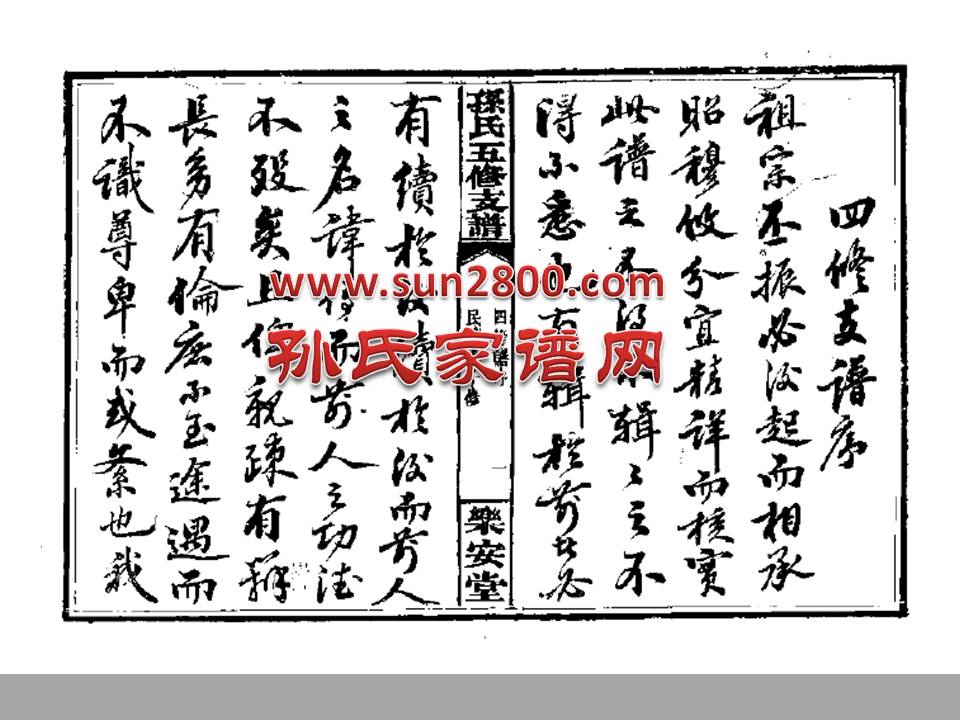 四修支譜序
祖宗丕振必後起而相承
昭穆攸分宜精詳而核實
此譜之不輯之之不
得不急也有輯於前者必
孫氏五修支譜
四修譜序
民
一
樂安堂
有續於後續於後而前人
之名諱得而前人之功德
不毀矣且俾親疎有辨
長多有倫庶不至途遇而
不識尊卑而或紊也我
www.sun2800.com
孙氏家谱网